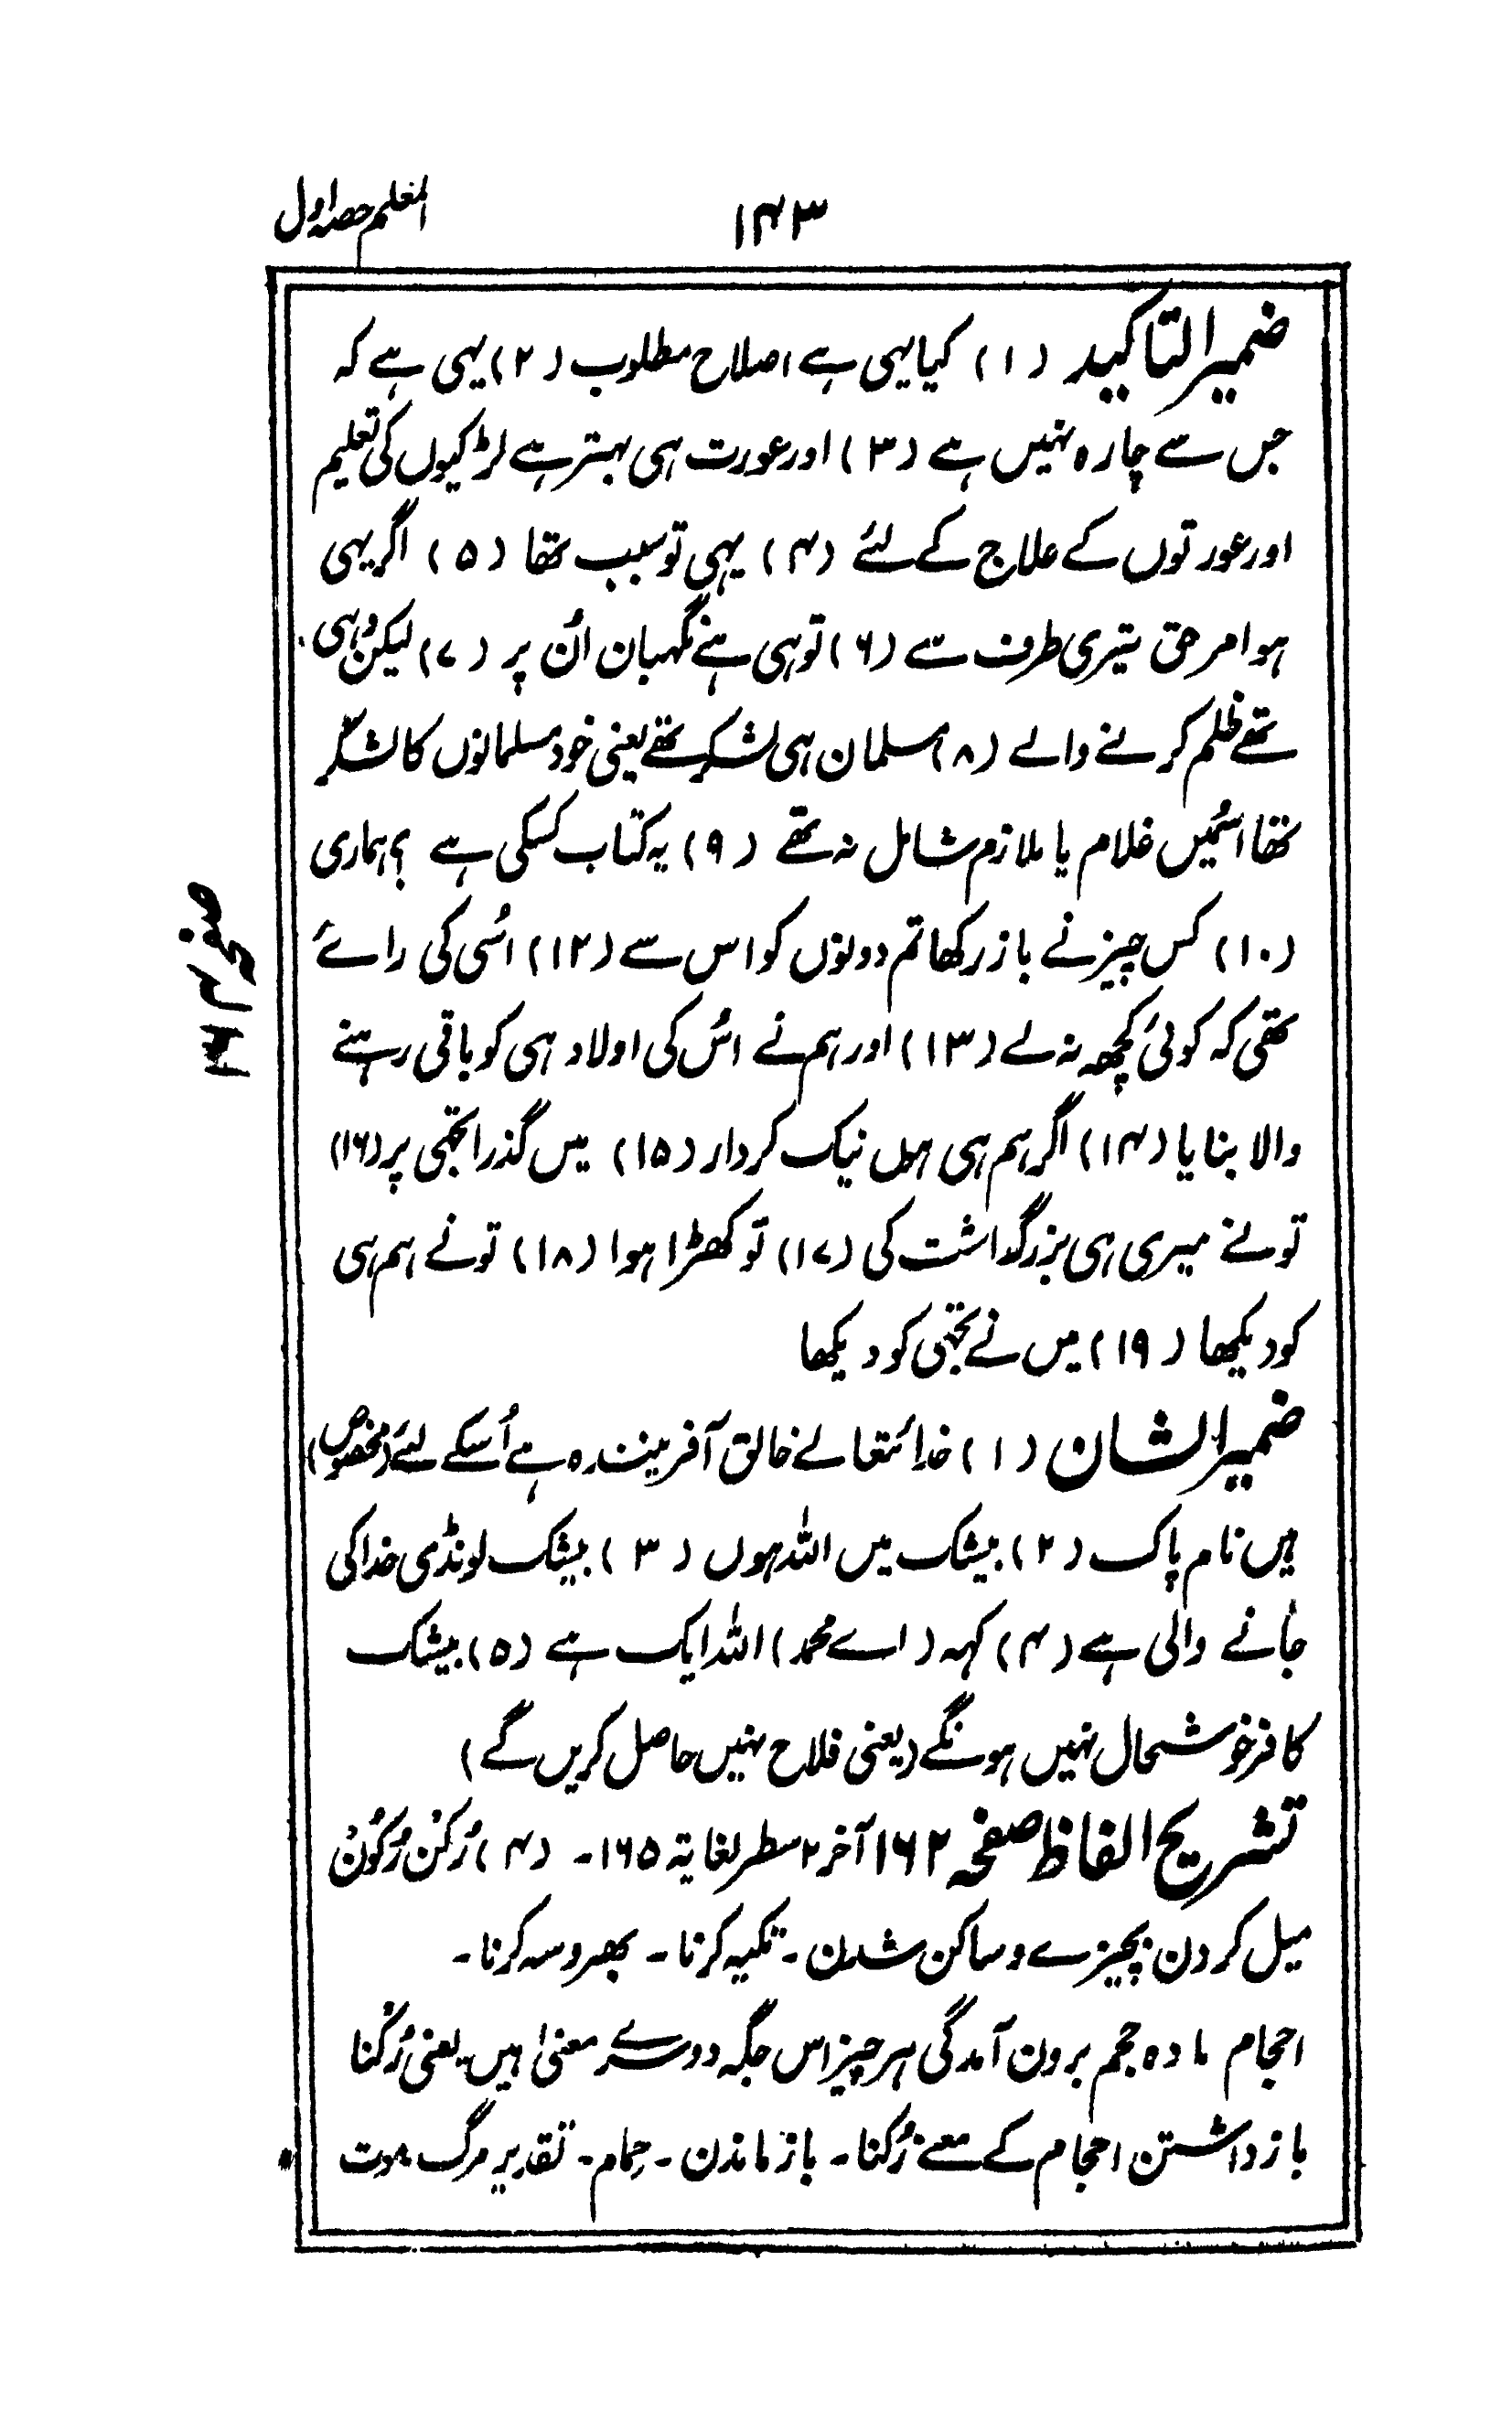 المعلم حصہ اول
۱۴۳
ضمیر التاکید (۱) کیا یہی ہے اصلاح مطلوب (۲) یہی ہے کہ
جس سے چارہ نہیں ہے (۳) اور عورت ہی بہتر ہے لڑکیوں کی تعلیم
اور عورتوں کے علاج کے لئے (۴) یہی تو سبب تھا (۵) اگر یہی
ہو امر حق تیری طرف سے (۶) تو ہی ہے نگہبان اُن پر (۷) لیکن وہی
تھے ظلم کرنے والے (۸) مسلمان ہی لشکر تھے یعنی خود مسلمانوں کا لشکر
تھا اسمیں غلام یا ملازم شامل نہ تھے (۹) یہ کتاب کسکی ہے ؟ ہماری
(۱۰) کس چیز نے باز رکھا تم دونوں کو اس سے (۱۲) اسُی کی رائے
تھی کہ کوئی کچھ نہ لے (۱۳) اور ہم نے اسُ کی اولاد ہی کو باقی رہنے
والا بنایا (۱۴) اگر ہم ہی ہوں نیک کردار (۱۵) میں گذرا تجھی پر (۱۶)
تو نے میری ہی بزرگداشت کی (۱۷) تو کھڑا ہوا (۱۸) تو نے ہم ہی
کو دیکھا (۱۹) میں نے تجھی کو دیکھا
ضمیر الشان (۱) خدائتعالے خالق آفرینندہ ہے اُسکے لئے (مخصوص)
ہیں نام پاک (۲) بیشک میں اللہ ہوں (۳) بیشک لونڈی خدا کی
جانے والی ہے (۴) کہہ (اے محمد) اللہ ایک ہے (۵) بیشک
کافر خوشحال نہیں ہونگے (یعنی فلاح نہیں حاصل کریں گے)
تشریح الفاظ صفحہ ۱۶۲ آخر ۲ سطر لغایۃ ۱۶۵۔ (۴) رُکْنْ رُکُوْنْ
میل کردن بچیزے و ساکن شدن۔ تکیہ کرنا۔ بھروسہ کرنا۔
احجام مادہ حجم برون آمدگی ہر چیز اس جگہ دوسرے معنیٰ ہیں۔ یعنی رُکنا
باز داشتن احجام کے معنے رُکنا۔ باز ماندن۔ حِمام۔ تقدیر مرگ موت